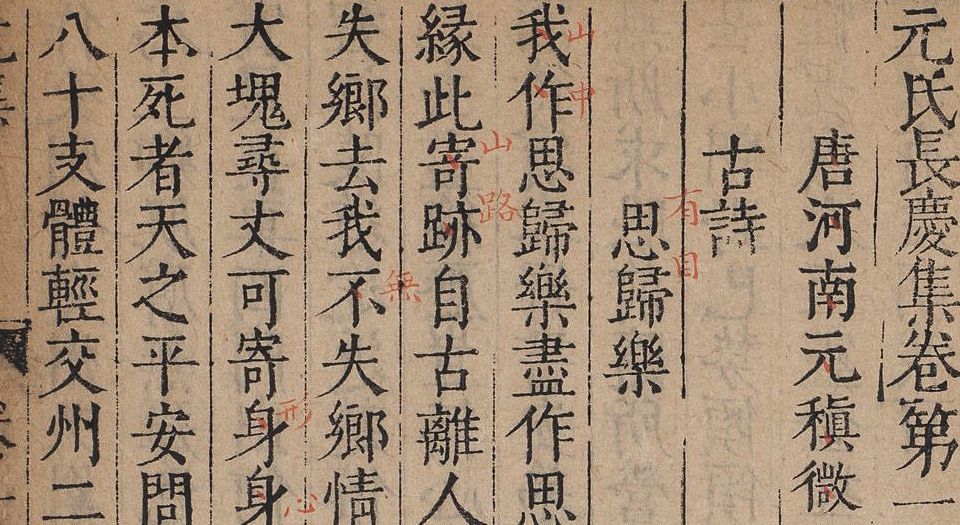 元氏長慶集卷第一
唐河南元稹微
古詩
有目
思歸樂
山中
我作思歸樂盡作思
山路
縁此寄跡自古離人
無
失鄉去我不失鄉情
形
心
大塊尋丈可寄身身
本死者天之平安問
八十支體輕交州二